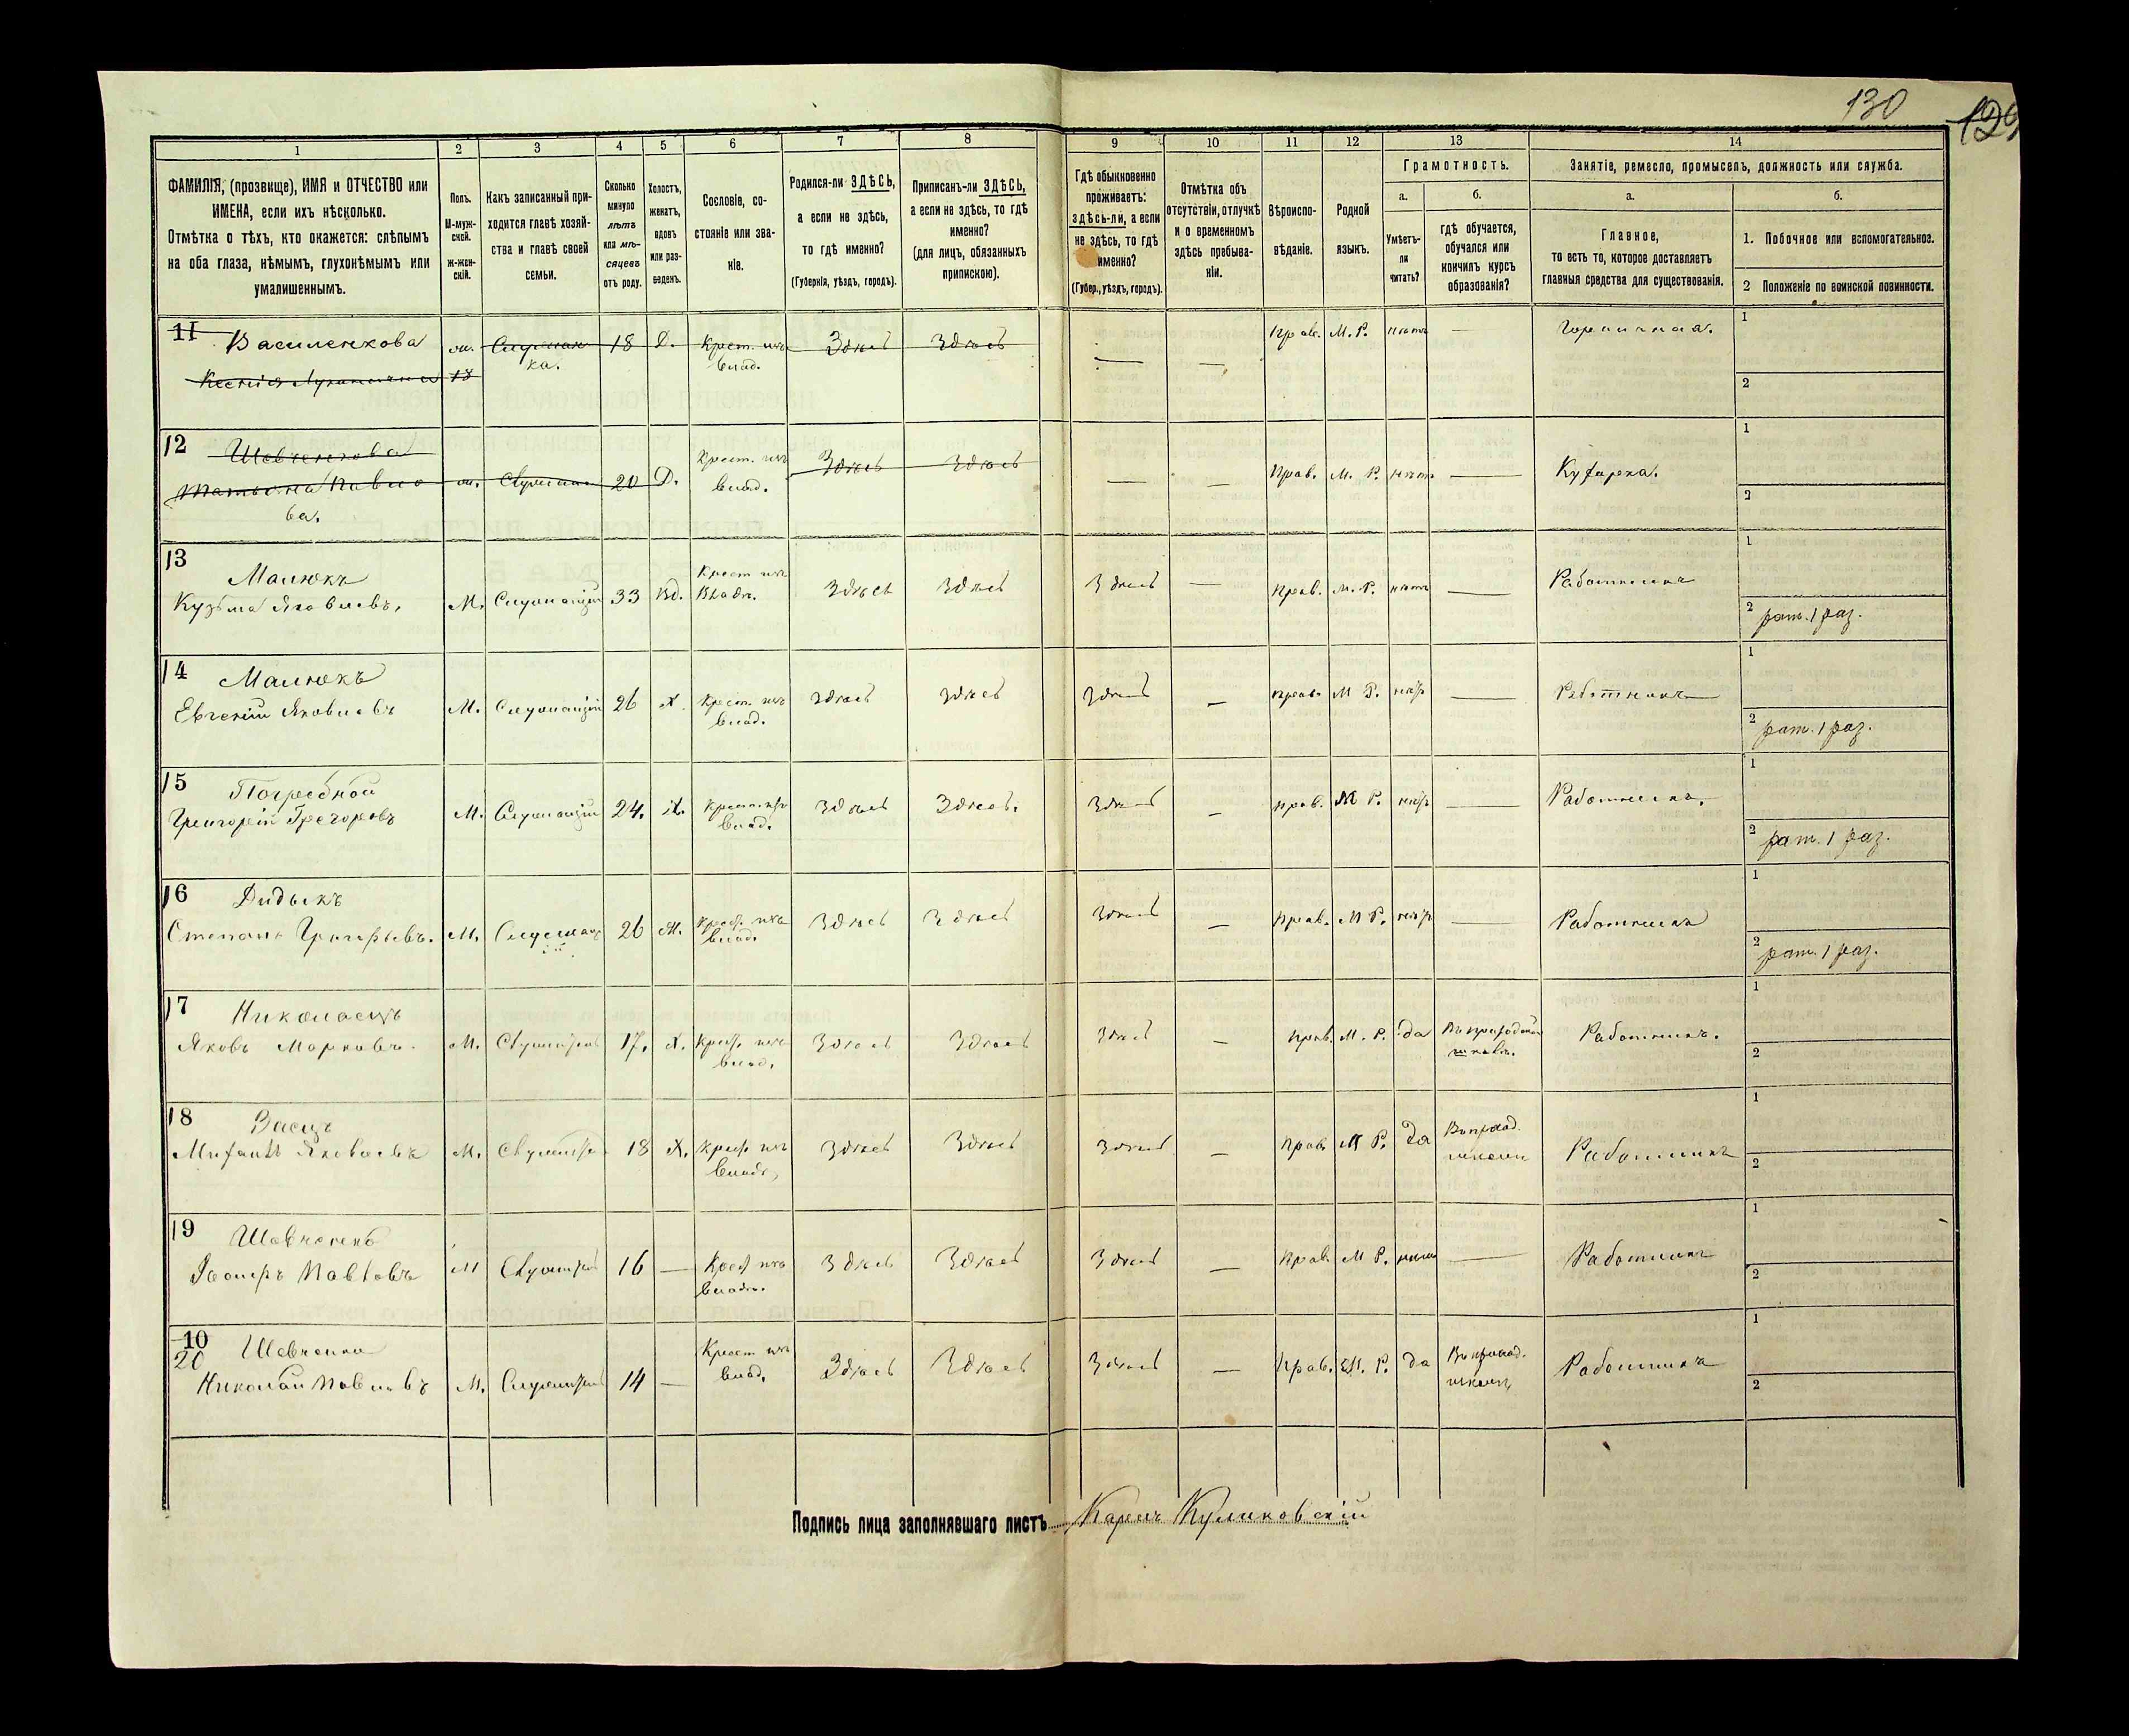 130
129
1
2
3
4
5
6
7
8
9
10
11
12
13
14
ФАМИЛІЯ, (прозвище), ИМЯ и ОТЧЕСТВО или
ИМЕНА, если ихъ нѣсколько.
Отмѣтка о тѣхъ, кто окажется: слѣпымъ
на оба глаза, нѣмымъ, глухонѣмымъ или
умалишеннымъ.
Полъ.
М-муж-
ской.
ж-жен-
скій.
Какъ записанный при-
ходится главѣ хозяй-
ства и главѣ своей
семьи.
Сколько
минуло
лѣтъ
или мѣ-
сяцевъ
отъ роду.
Холостъ,
женатъ,
вдовъ
или раз-
веденъ.
Сословіе, со-
стояніе или зва-
ніе.
Родился-ли ЗДѢСЬ,
а если не здѣсь,
то гдѣ именно?
(Губернія, уѣздъ, городъ).
Приписанъ-ли ЗДѢСЬ,
а если не здѣсь, то гдѣ
именно?
(для лицъ, обязанныхъ
припискою).
Гдѣ обыкновенно
проживаетъ:
здѣсь-ли, а если
не здѣсь, то гдѣ
именно?
(Губер., уѣздъ, городъ).
Отмѣтка объ
отсутствіи, отлучкѣ
и о временномъ
здѣсь пребыва-
ніи.
Вѣроиспо-
вѣданіе.
Родной
языкъ.
Грамотность.
а.
Умѣетъ-
ли
читать?
б.
гдѣ обучается,
обучался или
кончилъ курсъ
образованія?
Занятіе, ремесло, промыселъ, должность или служба.
а.
Главное,
то есть то, которое доставляетъ
главныя средства для существованія.
б.
1. Побочное или вспомогательное.
2 Положеніе по воинской повинности.
11 Василенкова 18 Д. Крест. изъ Здѣсь Здѣсь — — Прав. М. Р. нѣтъ — Горничная. 1
влад.
18
2
12 Шевченкова Крест. изъ Здѣсь Здѣсь — — Прав. М. Р. нѣтъ — Кухарка. 1
20 Д. влад.
2
13 Малюкъ Крест изъ Здѣсь Здѣсь Здѣсь — Прав. М. Р. нѣтъ — Работникъ 1
Кузьма Яковлевъ. М. Служащій 33 Вд. Владѣ.
2 рат. 1 раз.
14 Малюкъ
Евгеній Яковлевъ М. Служащій 26 Х. Крест. изъ Здѣсь Здѣсь Здѣсь — Прав. М Р. нѣтъ — Работникъ 1
влад.
2 рат. 1 раз.
15 Погребной
Григорій Григоровъ М. Служащій 24. Х. Крест. изъ Здѣсь Здѣсь. Здѣсь — Прав. М Р. нѣтъ — Работникъ. 1
влад.
2 рат. 1 раз.
16 Дидыкъ
Степанъ Григорьевъ. М. 26 Ж. Крест. изъ Здѣсь Здѣсь Здѣсь — Прав. М Р. нѣтъ — Работникъ 1
влад.
2 рат. 1 раз.
17 Николаецъ
Яковъ Марковъ. М. 17. Х. Крест. изъ Здѣсь Здѣсь Здѣсь — Прав. М. Р. да Работникъ. 1
влад.
2
18 Заецъ
Яковлевъ М. 18 Х. Крест. изъ Здѣсь Здѣсь Здѣсь — Прав М Р. да Работникъ 1
2
19
Павловъ М 16 — Крест изъ Здѣсь Здѣсь Здѣсь — Прав. М Р. — Работникъ 1
2
10
20 Шевченко
Николай Павловъ М. 14 — Крест изъ Здѣсь Здѣсь Здѣсь — Прав. М. Р. да Работникъ 1
влад.
2
Подпись лица заполнявшаго листъ Карлъ Куликовскій